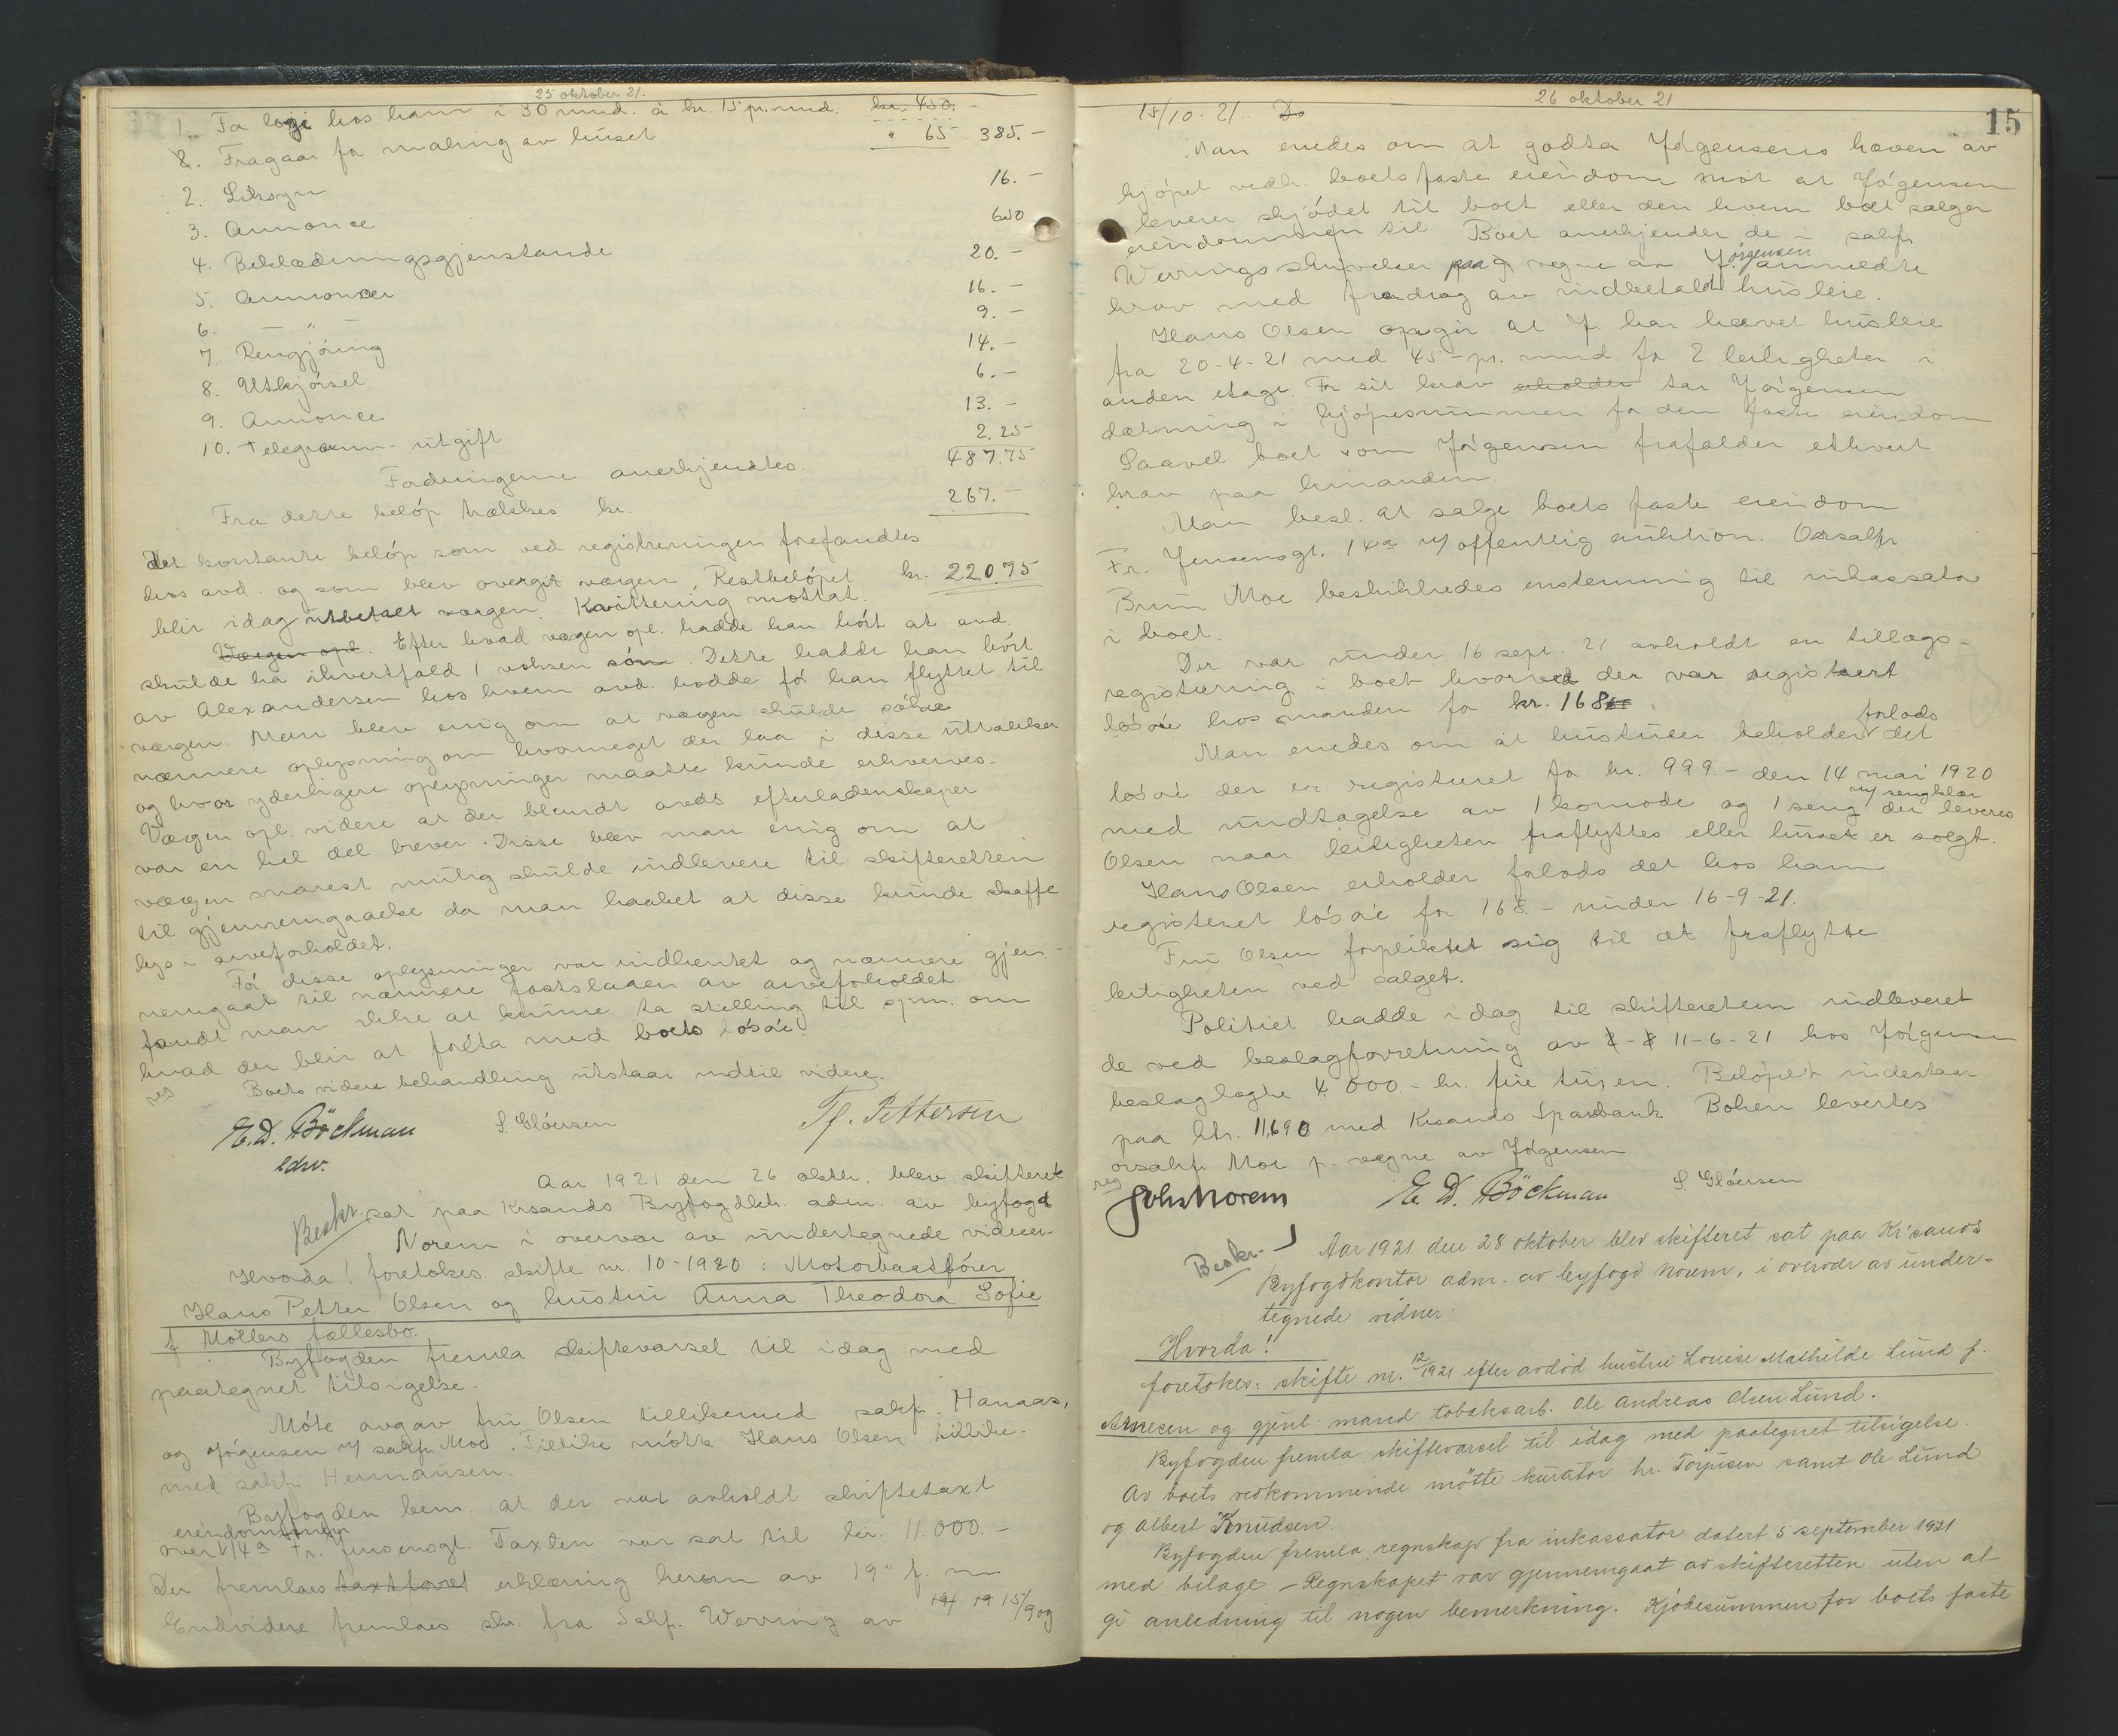 25 oktober 21.
1. Fa logi hos ham i 30 mnd. à kr. 15 pr. mnd. kr. 450. -
2. Fragaar for maling av huset " 65 385. -
2. Liksyn 16. -
3. Annonce 6.50
4. Beklædningsgjenstande 20. -
5. Annoncer 16. -
6. — " — 9. -
7. Rengjöring 14. -
8. Utkjörsel 6. -
9. Annonce 13. -
10. Telegram-utgift 2.25
Fordringerne anerkjendtes. 487.75
Fra dette belöp trækkes kr. 267. -
det kontante belöp som ved registreringen forefandtes
hos avd. og som blev overgit værgen, Restbelöpet kr. 220.75
blir idag utbetalt værgen. Kvittering mottat.
Værgen opl. Efter hvad værgen opl. hadde han hört at avd.
skulde ha ihvertfald 1 voksen sön. Dette hadde han hört
av Alexandersen hos hvem avd. bodde för han flyttet til
værgen. Man blev enig om at værgen skulde söke
nærmere oplysning om hvormeget der laa i disse uttalelser
og hvor yderligere oplysninger maatte kunde erhverves.
Værgen opl. videre at der blandt avds efterladenskaper
var en hel del brever. Disse blev man enig om at
værgen snarest mulig skulde indlevere til skifteretten
til gjennemgaaelse da man haabet at disse kunde skaffe
lys i arveforholdet.
För disse oplysninger var indhentet og nærmere gjen-
nemgaat til nærmere fastslaaen av arveforholdet
fandt man ikke at kunne ta stilling til spm. om
hvad der blir at foreta med boets lösöre.
Boets videre behandling utstaar indtil videre.
E. D. Böckman S. Glöersen Tf. Pettersen
edsv.
Aar 1921 den 26 oktbr. blev skifteret
Beskr. sat paa Krsands Byfogdktr. adm. av byfogd
Norem i overvær av undertegnede vidner.
Hvorda! foretokes skifte nr. 10-1920: Motorbaatförer
Hans Petter Olsen og hustru Anna Theodora Sofie
f. Möllers fællesbo.
Byfogden fremla skiftevarsel til idag med
paategnet tilsigelse.
Möte avgav fru Olsen tillikemed sakf. Hanaas,
og Jörgensen m/ sakf. Moe. Tillike mötte Hans Olsen tillike-
med sakf. Hermansen.
Byfogden bem. at der var avholdt skiftetaxt
eiendommen
over 14a Fr. Jensensgt. Taxten var sat til kr. 11.000. -
Der fremlaes taxtforret erklæring herom av 19" f. m
Endvidere fremlaes skr. fra Sakf. Werring av 15/9 og
26 oktober 21
15
15/10. 21. Do
Man enedes om at godta Jörgensens hæven av
kjöpet vedk. boets faste eiendom mot at Jörgensen
leverer skjödet til boet eller den hvem boet sælger
eiendommen til. Boet anerkjender de i sakf.
Werrings skrivelser paa vegne av Jörgensen anmeldte
krav med fradrag av indbetalt husleie.
Hans Olsen opgir at J. har hævet husleie
fra 20-4-21 med 45.- pr. mnd. for 2 leiligheter i
anden etage. For sit krav erholder tar Jörgensen
dækning i kjöpesummen for den faste eiendom
Saavel boet som Jörgensen frafalder ethvert
krav paa hinanden
Man besl. at sælge boets faste eiendom
Fr. Jensensgt. 14a v/ offentlig auktion. Orsakf.
Bruun Moe beskikkedes enstemmig til inkassator
i boet.
Der var under 16 sept. 21 avholdt en tillægs-
registrering i boet hvorved der var registrert
lösöre hos manden for kr. 168
Man enedes om at hustruen beholder forlods det
lösöre der er registrert for kr. 999 - den 14 mai 1920
med undtagelse av 1 komode og 1 seng m/ sengklær der leveres
Olsen naar leiligheten fraflyttes eller huset er solgt.
Hans Olsen erholder forlods det hos ham
registrert lösöre for 168 - under 16-9-21.
Fru Olsen forpliktet sig til at fraflytte
leiligheten ved salget.
Politiet hadde idag til skifteretten indleveret
de ved beslagforretning av 11-6-21 hos Jörgensen
beslaglagte 4.000.- kr. fire tusen. Belöpet indestaar
paa ktr. 11,690 med Krsands Sparebank Boken levertes
orsakf. Moe p. vegne av Jörgensen
Johs Norem E. D. Böckman S. Glöersen
Beskr. Aar 1921 den 28 oktober blev skifteret sat paa Kr'sands
Byfogdkontor adm. av byfogd Norem, i overvær av under-
tegnede vidner.
Hvorda!
foretokes: skifte nr. 12/1921 efter avdöd hustru Louise Mathilde Lund f.
Arnesen og gjenl. mand tobaksarb. Ole Andreas Olsen Lund.
Byfogden fremla skiftevarsel til idag med paategnet tilsigelse.
Av boets vedkommende mötte kurator hr. Torjusen samt Ole Lund
og Albert Knudsen.
Byfogden fremla regnskap fra inkassator datert 5 september 1921
med bilage – Regnskapet var gjennemgaat av skifteretten uten at
gi anledning til nogen bemerkning. Kjöbesummen for boets faste